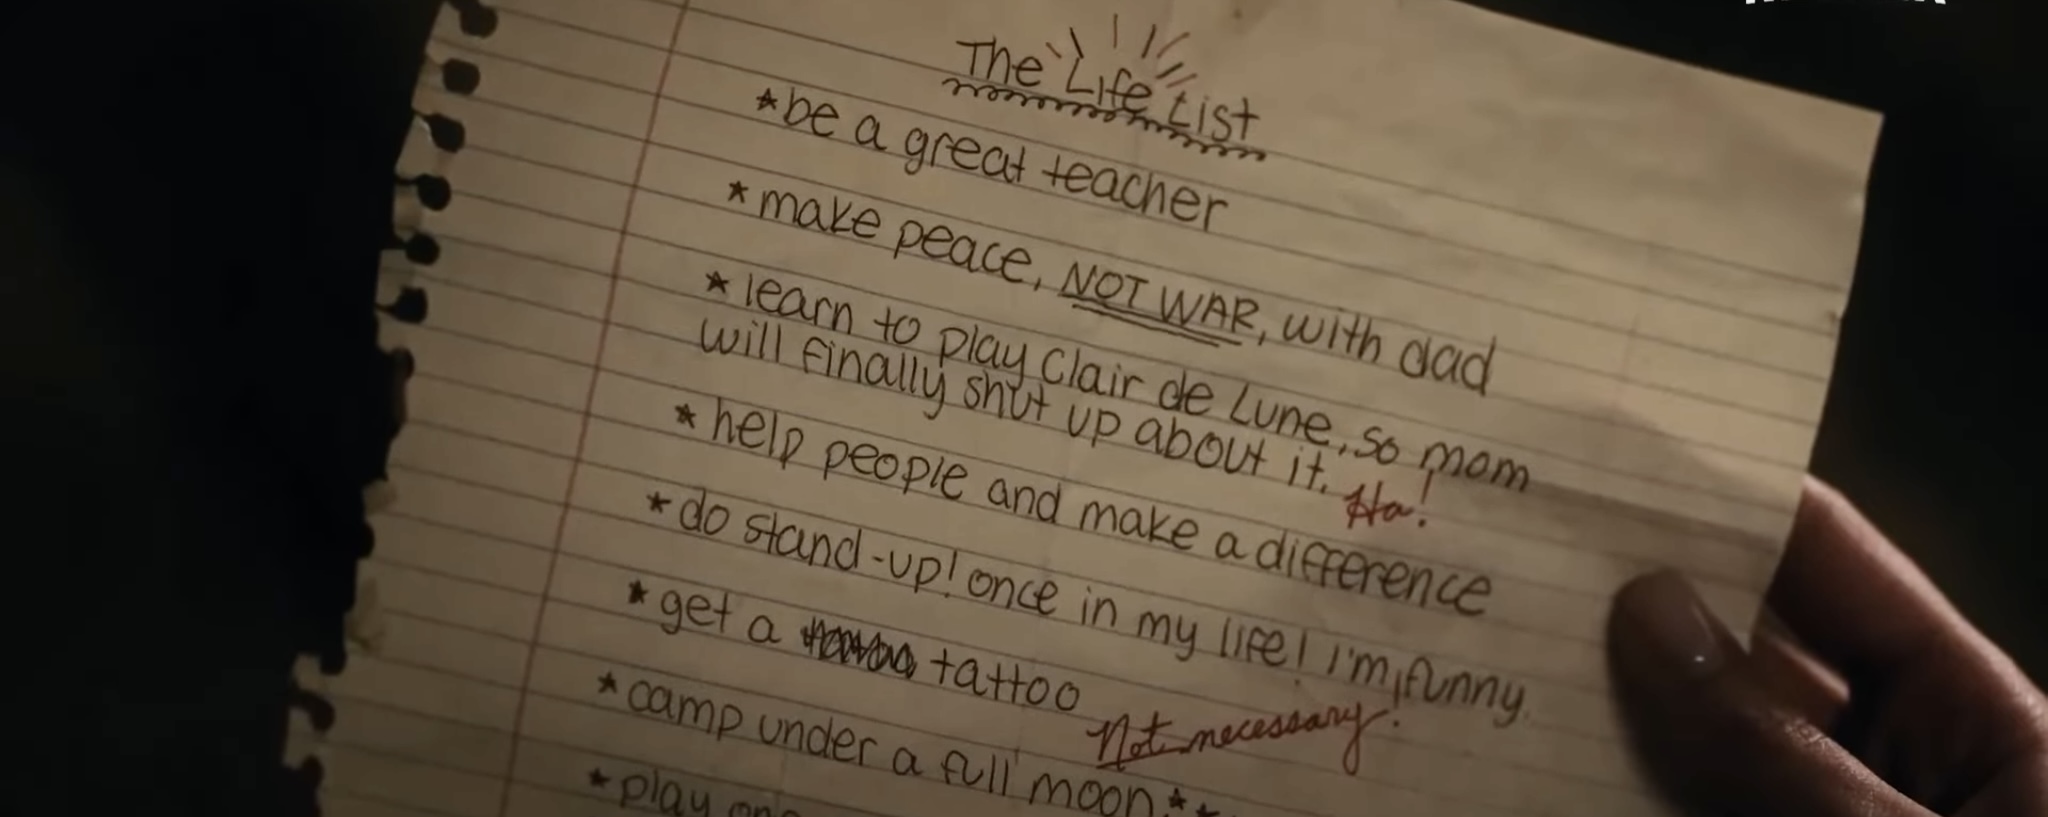 The Life List
*be a great teacher
*make peace, NOT WAR, with dad
*learn to play Clair de Lune, so mom
will finally shut up about it. Ha!
*help people and make a difference
*do stand-up! once in my life! I'm funny.
*get a tattoo Not necessary!
*camp under a full moon**
*play